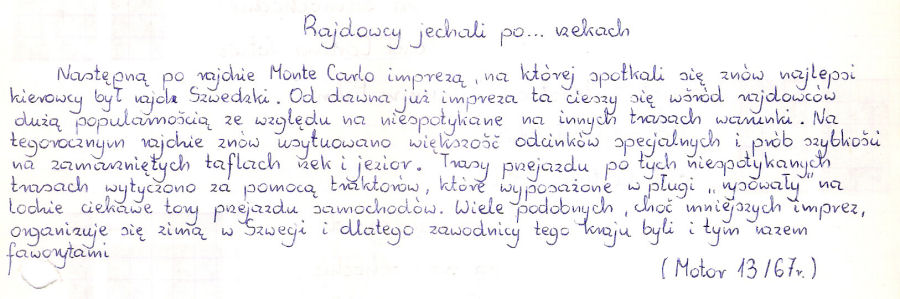 Rajdowcy jechali po... rzekach
Następną po rajdzie Monte Carlo imprezą, na której spotkali się znów najlepsi
kierowcy był rajd Szwedzki. Od dawna już impreza ta cieszy się wśród rajdowców
dużą popularnością ze względu na niespotykane na innych trasach warunki. Na
tegorocznym rajdzie znów usytuowano większość odcinków specjalnych i prób szybkości
na zamarzniętych taflach rzek i jezior. Trasy przejazdu po tych niespotykanych
trasach wytyczono za pomocą traktorów, które wyposażone w pługi „rysowały" na
lodzie ciekawe tory przejazdu samochodów. Wiele podobnych, choć mniejszych imprez,
organizuje się zimą w Szwecji i dlatego zawodnicy tego kraju byli i tym razem
faworytami
(Motor 13/67r.)